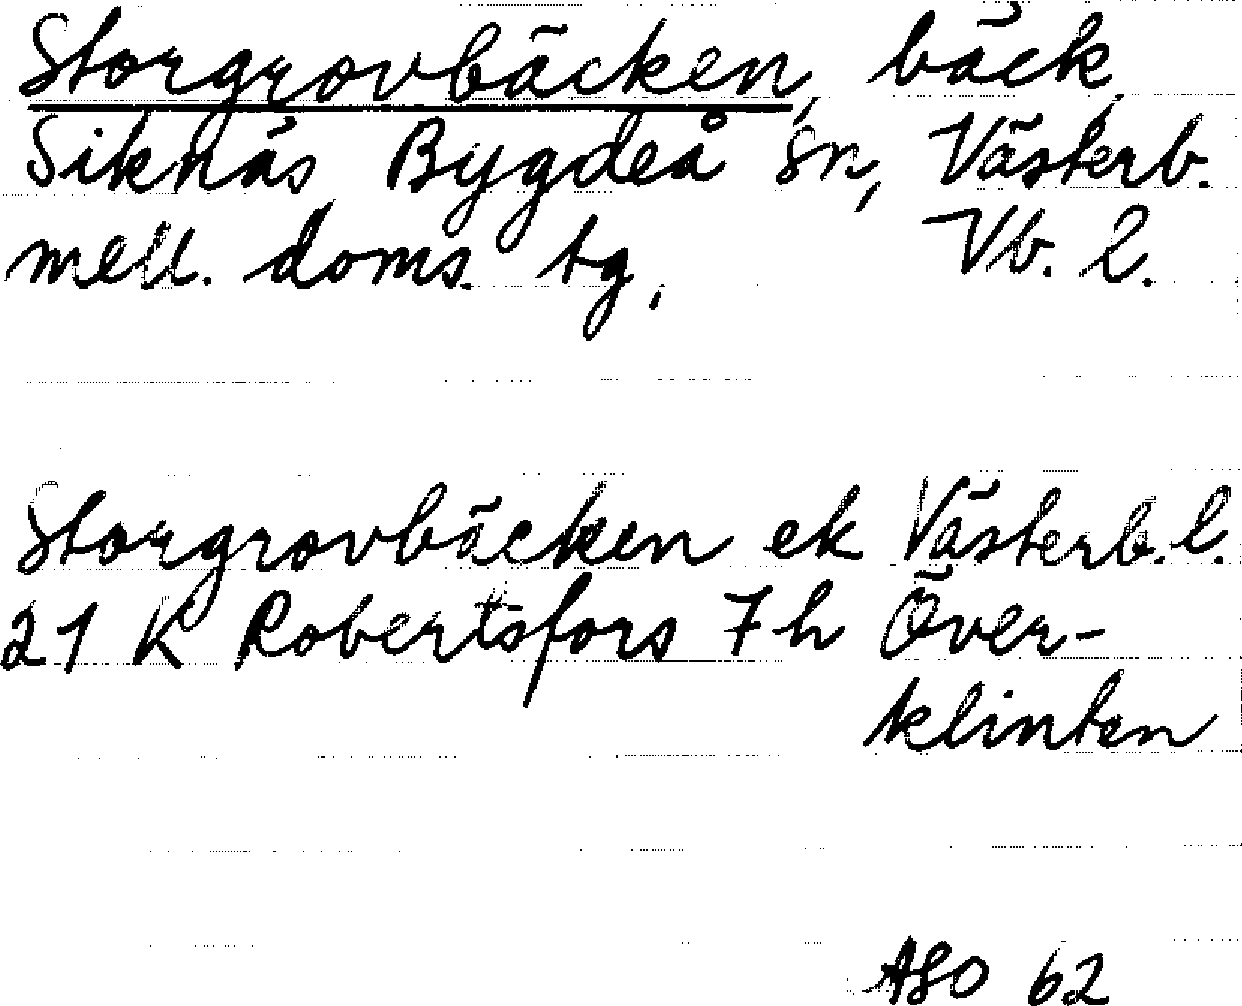 Storgrovbäcken, bäck,
Siknäs Bygdeå sn, Västerb.
mell. doms. tg, Vb. l.
Storgrovbäcken ek Västerb. l.
21 K Robertsfors 7 h Över-
klinten
ASO 62